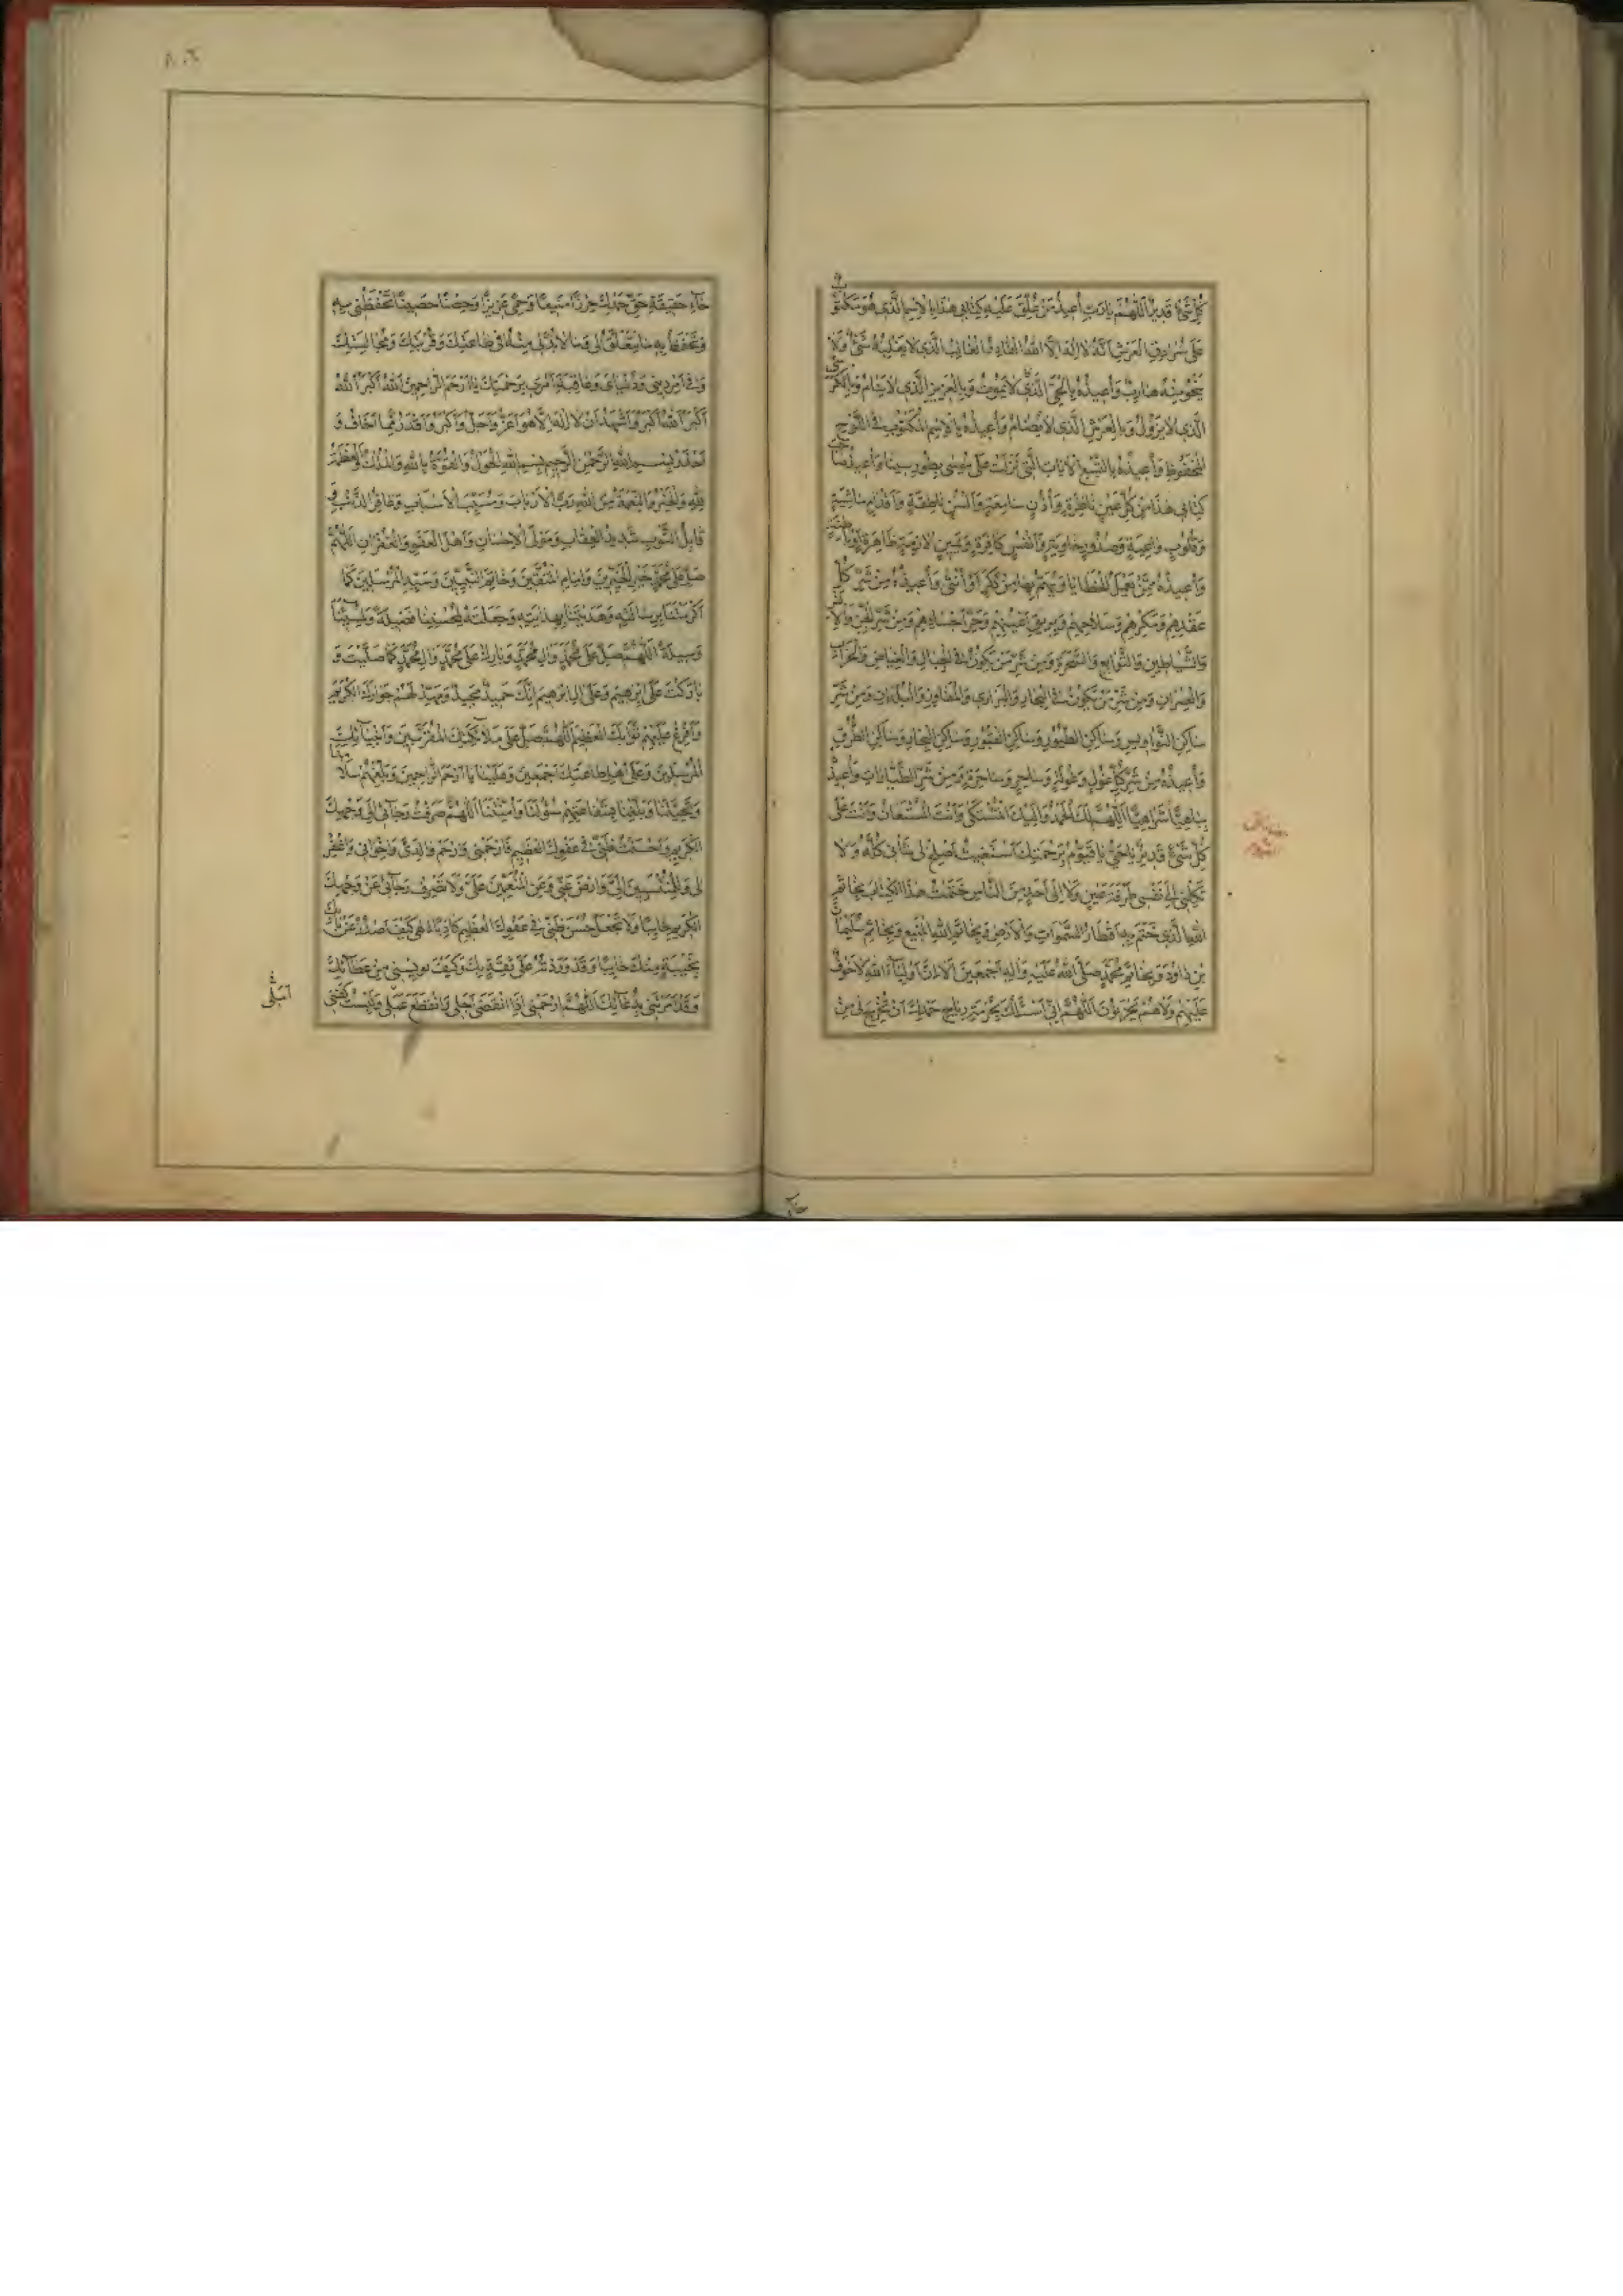 كُلِّ شَيْءٍ قَدِيرٌ اَللّٰهُمَّ يَا رَبِّ أُعِيذُ مَنْ عُلِّقَ عَلَيْهِ كِتَابِي هٰذَا بِالْاِسْمِ الَّذِي هُوَ مَكْتُوبٌ
عَلَى سُرَادِقِ الْعَرْشِ أَنَّهُ لَا إِلٰهَ إِلَّا اللهُ الْغَالِبُ الَّذِي لَا يَغْلِبُهُ شَيْءٌ وَلَا
يَنْجُو مِنْهُ هَارِبٌ وَأُعِيذُهُ بِالْحَيِّ الَّذِي لَا يَمُوتُ وَبِالْعَزِيزِ الَّذِي لَا يَنَامُ وَبِالْكُرْسِيِّ
الَّذِي لَا يَزُولُ وَبِالْعَرْشِ الَّذِي لَا يُضَامُ وَأُعِيذُهُ بِالْاِسْمِ الْمَكْتُوبِ فِي اللَّوْحِ
الْمَحْفُوظِ وَأُعِيذُهُ بِالسَّبْعِ الْآيَاتِ الَّتِي نَزَلَتْ عَلَى مُوسَى بِطُورِ سِينَا وَأُعِيذُ صَاحِبَ
كِتَابِي هٰذَا مِنْ كُلِّ عَيْنٍ نَاظِرَةٍ وَأُذُنٍ سَامِعَةٍ وَأَلْسُنٍ نَاطِقَةٍ وَأَقْدَامٍ مَاشِيَةٍ
وَقُلُوبٍ وَاعِيَةٍ وَصُدُورٍ خَاوِيَةٍ وَأَنْفُسٍ كَافِرَةٍ وَعَيْنٍ لَازِمَةٍ ظَاهِرَةٍ
وَأُعِيذُهُ مِمَّنْ يَعْمَلُ الْخَطَايَا وَيَهُمُّ بِهَا مِنْ ذَكَرٍ أَوْ أُنْثَى وَأُعِيذُهُ مِنْ شَرِّ كُلِّ
عُقَدِهِمْ وَمَكْرِهِمْ وَسَلَاحِهِمْ وَبَرِيقِ أَعْيُنِهِمْ وَحَرِّ أَجْسَادِهِمْ وَمِنْ شَرِّ الْجِنِّ وَالْاِنْسِ
وَالشَّيَاطِينِ وَالتَّوَابِعِ وَالسَّحَرَةِ وَمِنْ شَرِّ مَنْ يَكُونُ فِي الْجِبَالِ وَالْغِيَاضِ وَالْخَرَابِ
وَالْعُمْرَانِ وَمِنْ شَرِّ مَنْ يَكُونُ فِي الْبِحَارِ وَالْبَرَارِي وَالْمَفَاوِزِ وَالْبُلْدَانِ وَمِنْ شَرِّ
سَاكِنِ النَّوَاوِيسِ وَسَاكِنِ الطُّيُورِ وَسَاكِنِ الْقُبُورِ وَسَاكِنِ الْبِحَارِ وَسَاكِنِ الطُّرُقِ
وَأُعِيذُهُ مِنْ شَرِّ كُلِّ غُولٍ وَغُولَةٍ وَسَاحِرٍ وَسَاحِرَةٍ وَمِنْ شَرِّ الطَّيَّارَاتِ وَأُعِيذُهُ
بِيَاهِيًّا شَرَاهِيًّا اَللّٰهُمَّ لَكَ الْحَمْدُ وَإِلَيْكَ الْمُشْتَكَى وَأَنْتَ الْمُسْتَعَانُ وَأَنْتَ عَلَى
كُلِّ شَيْءٍ قَدِيرٌ يَا حَيُّ يَا قَيُّومُ بِرَحْمَتِكَ أَسْتَغِيثُ أَصْلِحْ لِي شَأْنِي كُلَّهُ وَلَا
تَكِلْنِي إِلَى نَفْسِي طَرْفَةَ عَيْنٍ وَلَا إِلَى أَحَدٍ مِنَ النَّاسِ خَتَمْتُ هٰذَا الْكِتَابَ بِخَاتَمِ
اللهِ الَّذِي خَتَمَ بِهِ أَقْطَارَ السَّمٰوَاتِ وَالْأَرْضِ وَبِخَاتَمِ اللهِ الْمَنِيعِ وَبِخَاتَمِ سُلَيْمَانَ
بْنِ دَاوُدَ وَبِخَاتَمِ مُحَمَّدٍ صَلَّى اللهُ عَلَيْهِ وَآلِهِ أَجْمَعِينَ أَلَا إِنَّ أَوْلِيَاءَ اللهِ لَا خَوْفٌ
عَلَيْهِمْ وَلَا هُمْ يَحْزَنُونَ اَللّٰهُمَّ إِنِّي أَسْئَلُكَ
خَاءِ
٨٠٦
خَاءِ حَقِيقَةِ حَقِّ حَمْدِكَ حِرْزًا مَنِيعًا وَحِمًى عَزِيزًا وَحِصْنًا حَصِينًا تَحْفَظُنِي بِهِ
وَتَحْفَظُ بِهِ مَا يَتَعَلَّقُ لِي وَمَا لَا بُدَّ لِي مِنْهُ فِي طَاعَتِكَ وَقُرْبِكَ وَمُجَالَسَتِكَ
وَفِي أَمْرِ دِينِي وَدُنْيَايَ وَعَاقِبَةِ أَمْرِي بِرَحْمَتِكَ يَا أَرْحَمَ الرَّاحِمِينَ اَللهُ أَكْبَرُ اَللهُ
أَكْبَرُ اَللهُ أَكْبَرُ وَأَشْهَدُ أَنْ لَا إِلٰهَ إِلَّا هُوَ أَعَزُّ وَأَجَلُّ وَأَكْبَرُ وَأَقْدَرُ مِمَّا أَخَافُ وَ
أَحْذَرُ بِسْمِ اللهِ الرَّحْمٰنِ الرَّحِيمِ بِسْمِ اللهِ الْحَوْلُ وَالْقُوَّةُ بِاللهِ وَالْمُلْكُ وَالْعَظَمَةُ
لِلّٰهِ وَالْخَيْرُ وَالنِّعْمَةُ مِنَ اللهِ رَبِّ الْأَرْبَابِ وَمُسَبِّبِ الْأَسْبَابِ وَغَافِرِ الذَّنْبِ وَ
قَابِلِ التَّوْبِ شَدِيدِ الْعِقَابِ وَمَوْلَى الْإِحْسَانِ وَأَهْلِ الْعَفْوِ وَالْغُفْرَانِ اَللّٰهُمَّ
صَلِّ عَلَى مُحَمَّدٍ خَيْرِ الْخَيِّرِينَ وَإِمَامِ الْمُتَّقِينَ وَخَاتَمِ النَّبِيِّينَ وَسَيِّدِ الْمُرْسَلِينَ كَمَا
أَكْرَمْتَنَا بِرِسَالَتِهِ وَهَدَيْتَنَا بِهِدَايَتِهِ وَجَعَلْتَهُ لِمُحْسِنِينَا فَضِيلَةً وَلِمُسِيئِنَا
وَسِيلَةً اَللّٰهُمَّ صَلِّ عَلَى مُحَمَّدٍ وَآلِ مُحَمَّدٍ وَبَارِكْ عَلَى مُحَمَّدٍ وَآلِ مُحَمَّدٍ كَمَا صَلَّيْتَ وَ
بَارَكْتَ عَلَى إِبْرٰهِيمَ وَعَلَى آلِ إِبْرٰهِيمَ إِنَّكَ حَمِيدٌ مَجِيدٌ وَمَهِّدْ لَهُمْ جِوَارَكَ الْكَرِيمَ
وَأَفْرِغْ عَلَيْهِمْ ثَوَابَكَ الْعَظِيمَ اَللّٰهُمَّ صَلِّ عَلَى مَلَائِكَتِكَ الْمُقَرَّبِينَ وَأَنْبِيَائِكَ
الْمُرْسَلِينَ وَعَلَى أَهْلِ طَاعَتِكَ أَجْمَعِينَ وَعَلَيْنَا يَا أَرْحَمَ الرَّاحِمِينَ وَبَلِّغْهُمْ سَلَامَنَا
وَتَحِيَّتَنَا وَبَلِّغْنَا بِشَفَاعَتِهِمْ سُؤْلَنَا وَأُمْنِيَّتَنَا اَللّٰهُمَّ صَرَفْتُ رَجَائِي إِلَى وَجْهِكَ
الْكَرِيمِ وَأَحْسَنْتُ ظَنِّي فِي عَفْوِكَ الْعَظِيمِ فَارْحَمْنِي وَارْحَمْ وَالِدَيَّ وَإِخْوَانِي وَاغْفِرْ
لِي وَلِلْمُنْتَسِبِينَ إِلَيَّ وَارْضَ عَنِّي وَعَنِ الْمُنْعِمِينَ عَلَيَّ وَلَا تَصْرِفْ رَجَائِي عَنْ وَجْهِكَ
الْكَرِيمِ خَائِبًا وَلَا تَجْعَلْ حُسْنَ ظَنِّي فِي عَفْوِكَ الْعَظِيمِ كَاذِبًا إِلٰهِي كَيْفَ أَصْدُرُ عَنْ بَابِكَ
بِخَيْبَةٍ مِنْكَ خَائِبًا وَقَدْ وَرَدْتُهُ عَلَى ثِقَةٍ بِكَ وَكَيْفَ تُويِسُنِي مِنْ عَطَائِكَ
وَقَدْ أَمَرْتَنِي بِدُعَائِكَ اَللّٰهُمَّ ارْحَمْنِي إِذَا انْقَضَى أَجَلِي وَانْقَطَعَ عَمَلِي وَلَبِسْتُ كَفَنِي